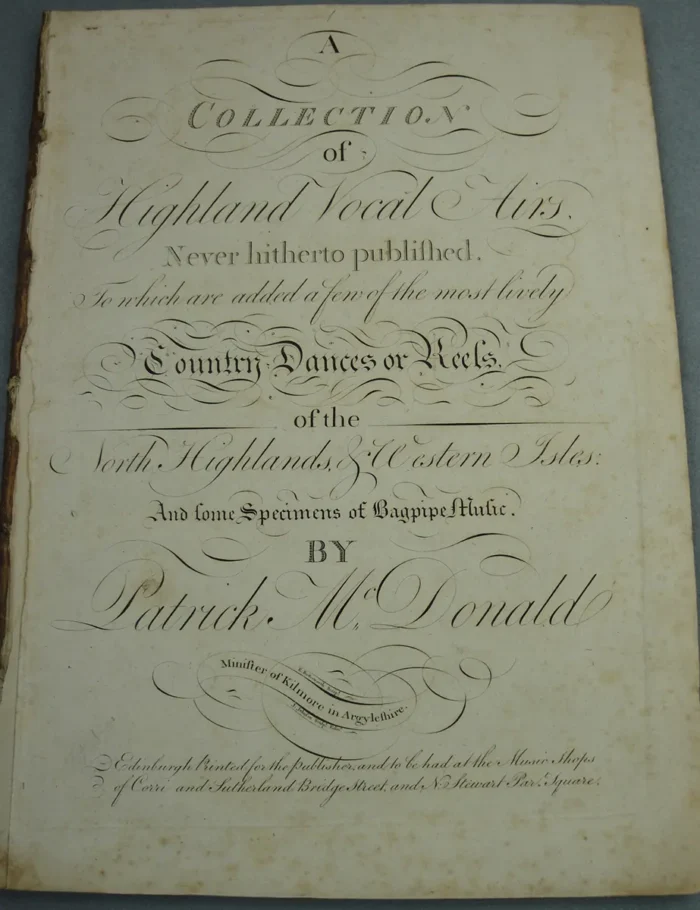 A
COLLECTION
of
Highland Vocal Airs.
Never hitherto publiſhed.
To which are added a few of the most lively
Country Dances or Reels,
of the
North Highlands, & Western Isles:
And ſome Specimens of Bagpipe Muſic.
BY
Patrick Mc. Donald
Miniſter of Kilmore in Argyleſhire.
Edinburgh Printed for the Publisher, and to be had at the Music Shops
of Corri and Sutherland Bridge Street, and N. Stewart Par.t Square.